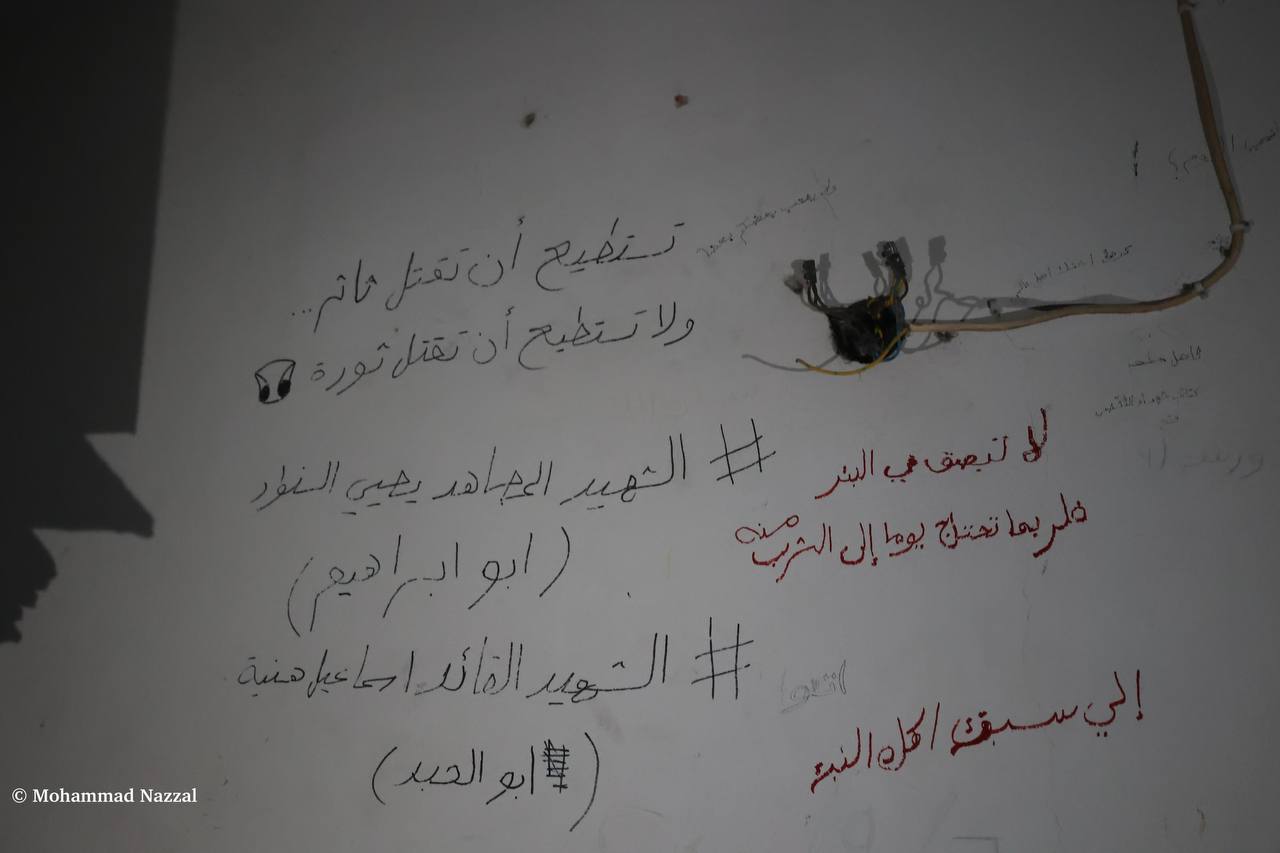 تستطيع أن تقتل ثائر...
ولا تستطيع أن تقتل ثورة
# الشهيد المجاهد يحيي السنوار
(ابو ابراهيم)
# الشهيد القائد اسماعيل هنية
(ابو العبد)
لا تبصق في البئر
فلربما تحتاج يوما إلى الشرب منه
إلي سبقك اكل النبق
© Mohammad Nazzal